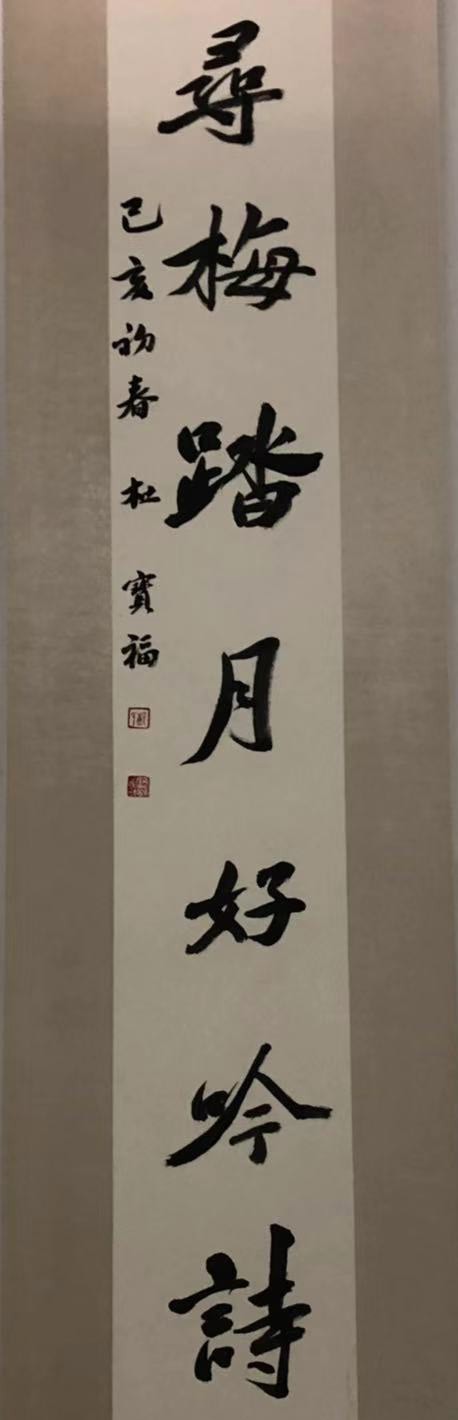 尋梅踏月好吟詩
己亥初春 杜寶福